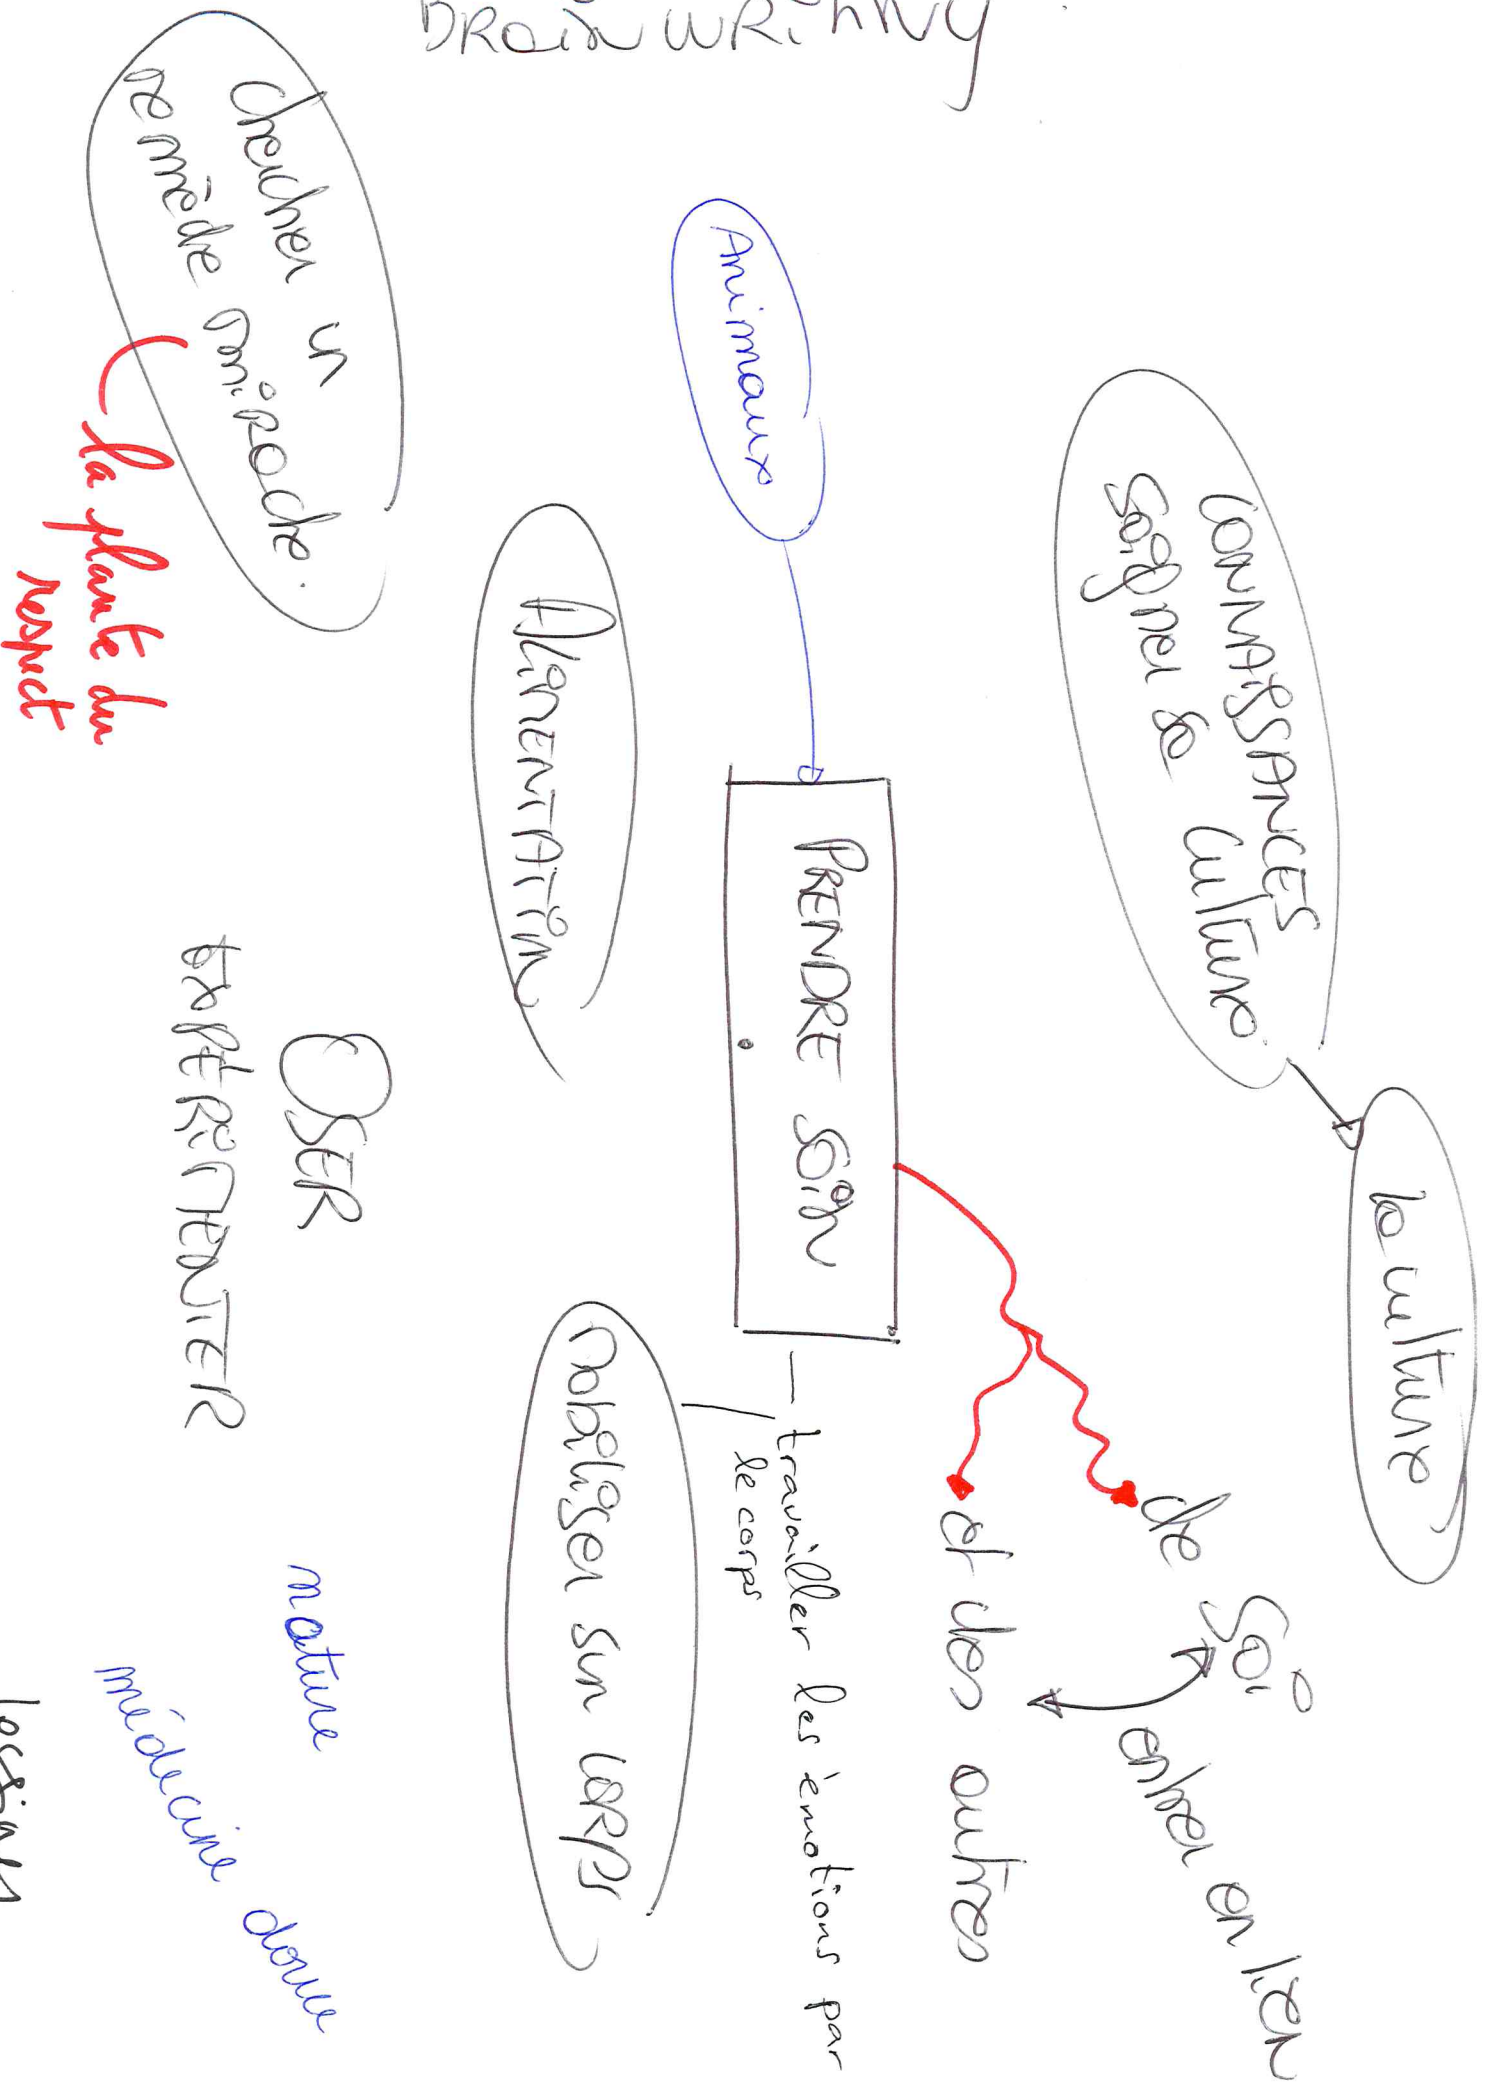 BRAINWRITING
la culture
CONNAISSANCES
Soigner sa culture.
de Soi
entrer en lien
et des autres
Animaux
PRENDRE SOIN
travailler les émotions par
le corps
ALIMENTATION
Mobiliser sun CORPS
chercher un
remède miracle.
la plante du
respect
OSER
EXPÉRIMENTER
nature
médecine douce